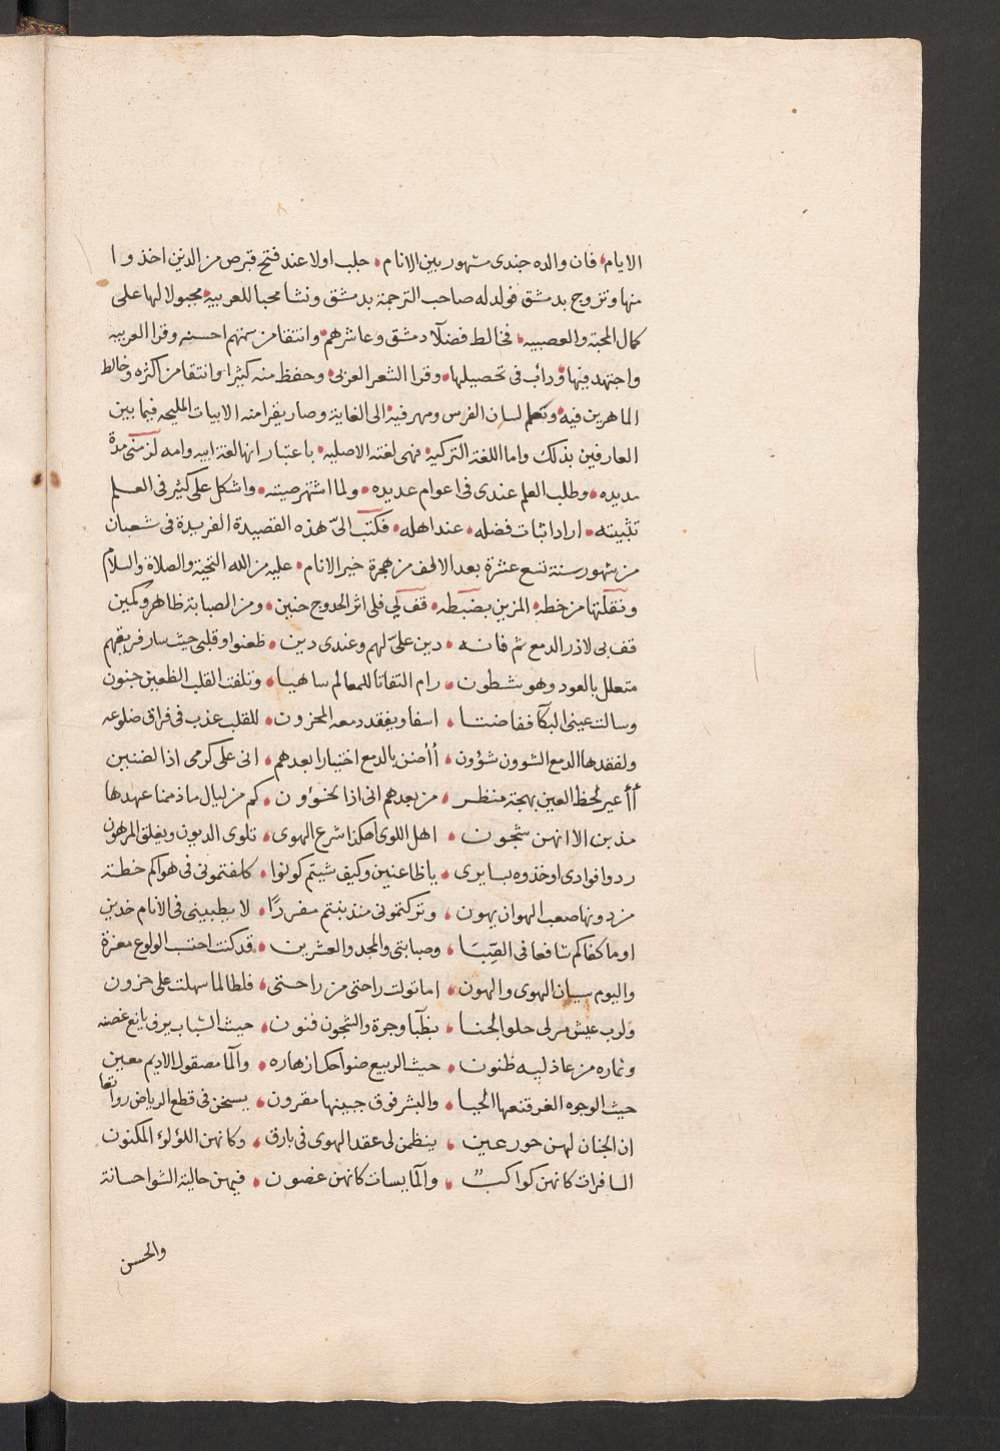 الايام فان والده جندى مشهور بين الانام جلب اولا عند فتح قبرص من الذين اخذوا
منها وتزوج بدمشق فولد له صاحب الترجمة بدمشق ونشا محبا للعربيه مجبولا لها على
كمال المحبة والعصبيه فخالط فضلآ دمشق وعاشرهم وانتقا من سمتهم احسنه وقرا العربيه
واجتهد فيها ودأب فى تحصيلها وقرا الشعر العربى وحفظ منه كثيرا وانتقا من اكثره وخالط
الماهرين فيه وتعلم لسان الفرس ومهر فيه الى الغاية وصار يقرا منه الابيات المليحه فيما بين
العارفين بذلك واما اللغة التركيه فهى لغته الاصليه باعتبار انها لغة ابيه وامه لزمنى مدة
مديده وطلب العلم عندى فى اعوام عديده ولما اشتهر صيته واشكل على كثير فى العلم
تثبيته اراد اثبات فضله عند اهله فكتب الىّ هذه القصيدة الفريدة فى شعبان
من شهور سنة تسع عشرة بعد الالف من هجرة خير الانام عليه من الله التحية والصلاة والسلام
ونقلتها من خطه المزين بضبطه قف لى فلى اثر الحدوج حنين ومن الصبابة ظاهر وكمين
قف بى لاذرى الدمع ثم فانه دين علىّ لهم وعندى دين ظعنوا وقلبى حيث سار فريقهم
متعلل بالعود وهو شطون رام التفاتا للمعالم ساهيا وتلفت القلب الظعين جنون
وسالت عينى البكآ ففاضتا اسفا ويفقد دمعه المحزون للقلب عذب فى فراق ضلوعه
ولفقدها الدمع الشوون شؤون أأضن بالدمع اختيارا بعدهم انى على كرمى اذا لضنين
أأعير لحظ العين بهجة منظر من بعدهم انى اذا لخؤون كم من ليال ماذممنا عهدها
مذ بن الا انهن شجون اهل اللوى اهكذا شرع الهوى تلوى الديون ويغلق المرهون
ردوا فوادى اوخذوه بسايرى ياظاعنين وكيف شيتم كونوا كلفتمونى فى هواكم خطة
من دونها صعب الهوان يهون وتركتمونى منذ بنتم مفردًا لا يطبينى فى الانام خدين
اوما كفاكم شافعا فى الصِّبَا وصبابتى والمجد والعشرين قد كنت احتسب الولوع معزة
واليوم سيان الهوى والهون اما تولت راحتى من راحتى فلطالما سهلت على حزون
ولرب عيش مر لى حلو الجنا بظبآ وجرة والشجون فنون حيث الشباب يرف يانع غصنه
وثماره من عاذليه ظنون حيث الربيع ضواحك ازهاره والمآ مصقول الاديم معين
حيث الوجوه الغر قنعها الحيا والبشر فوق جبينها مقرون يسخن فى قطع الرياض روائعا
ان الجنان لهن حور عين ينظمن لى عقد الهوى فى بارق وكانهن اللؤلؤ المكنون
السافرات كانهن كواكب والمآيسات كانهن غصون فيهن حالية الشوا حسانة
والحسن